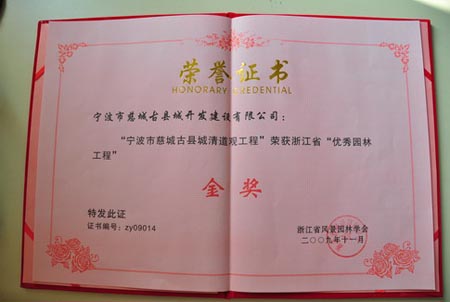 荣誉证书
HONORARY CREDENTIAL
宁波市慈城古县城开发建设有限公司：
“宁波市慈城古县城清道观工程”荣获浙江省“优秀园林
工程”
金奖
特发此证
证书编号：zy09014
浙江省风景园林学会
二〇〇九年十一月